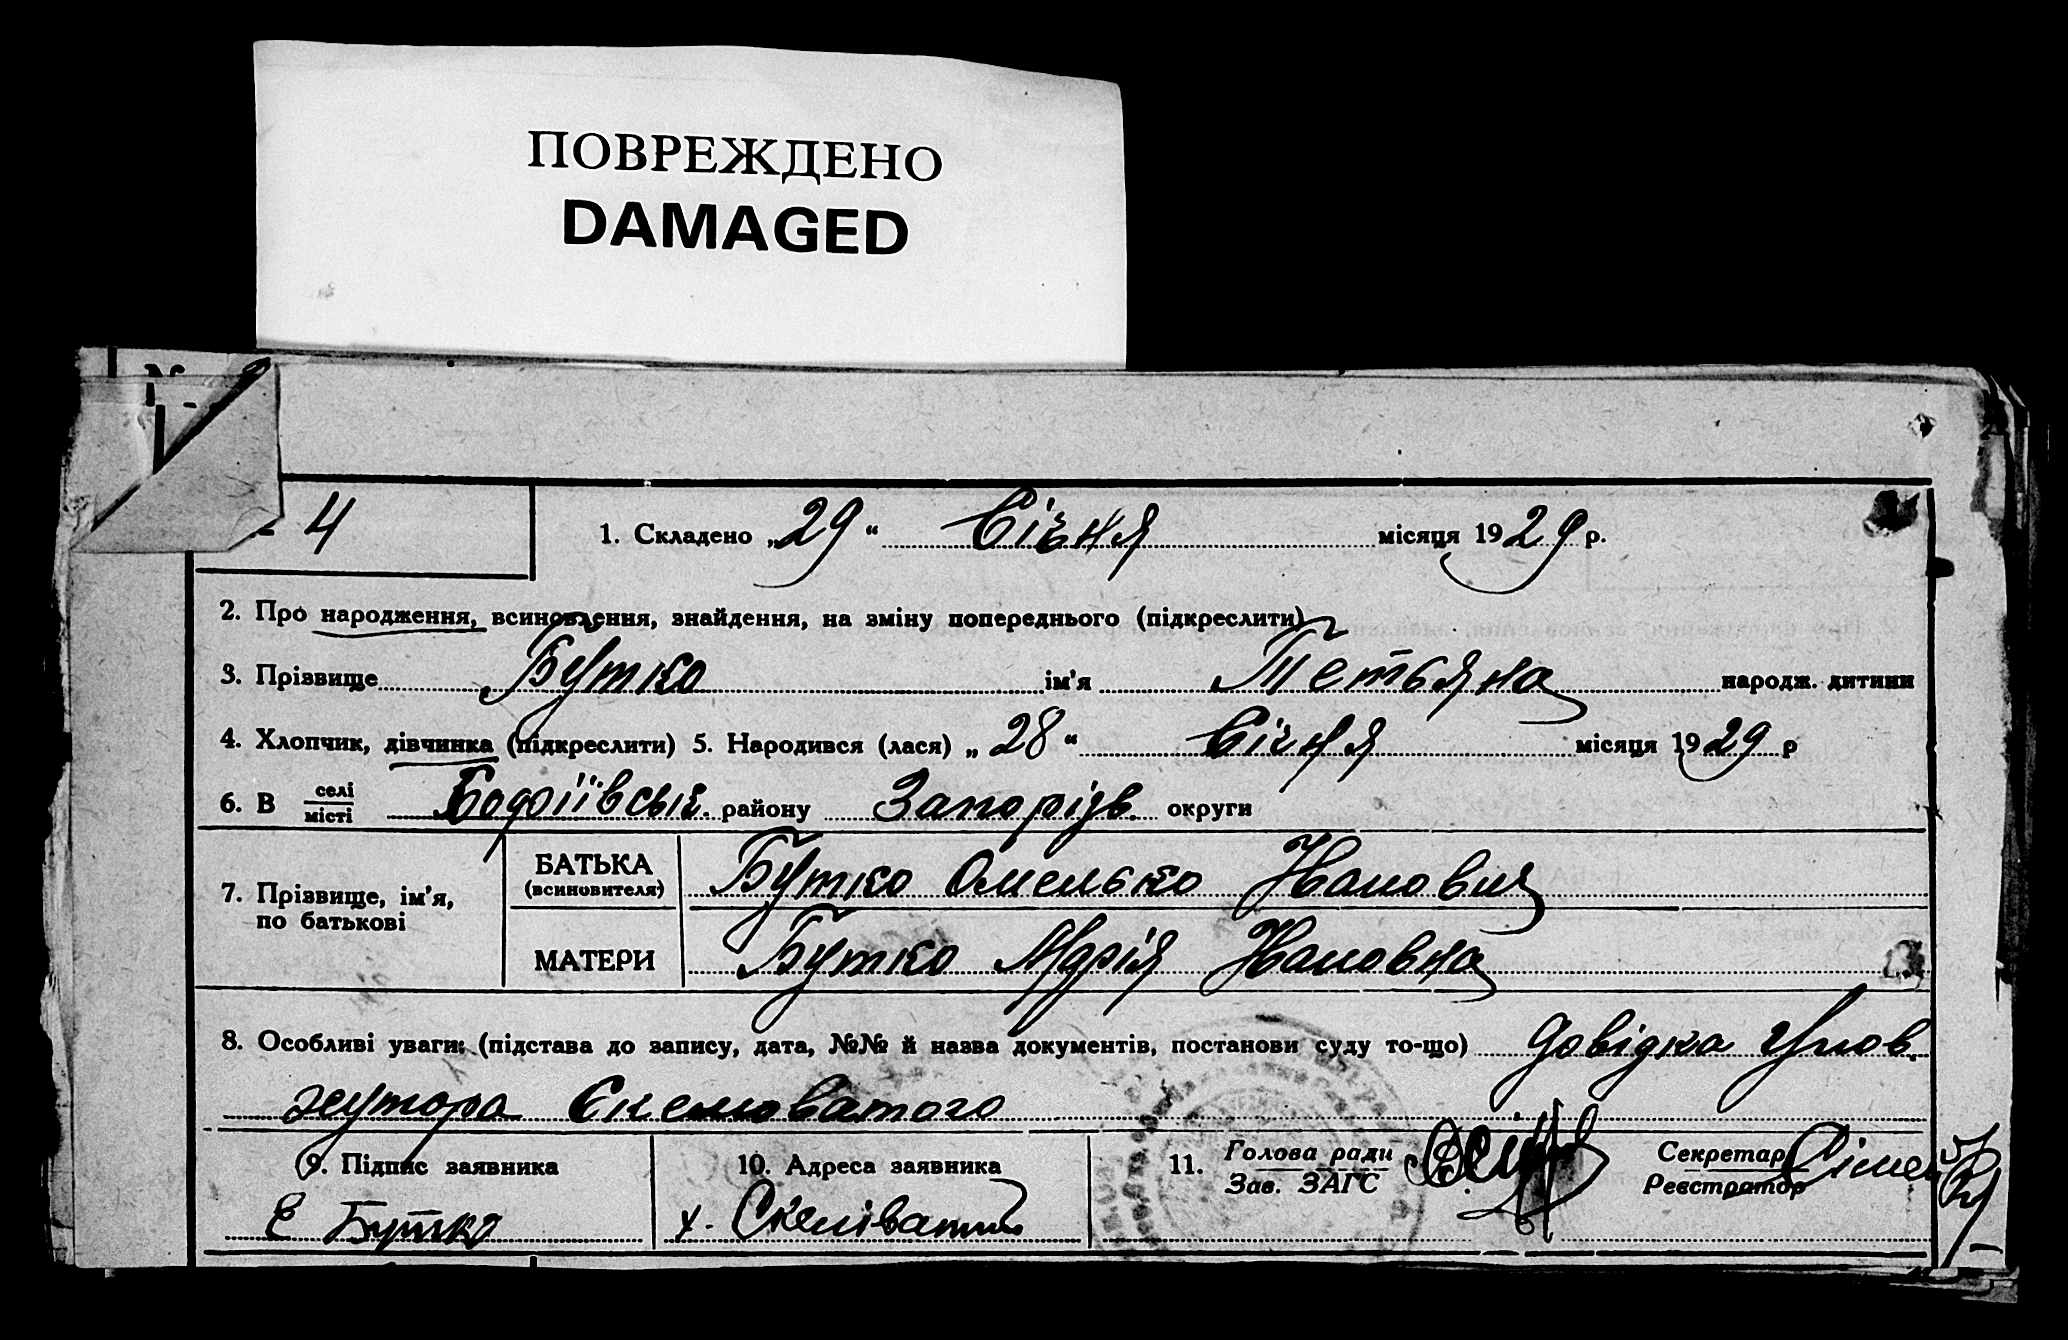 ПОВРЕЖДЕНО
DAMAGED
4
1. Складено „29“ Січня місяця 1929 р.
2. Про народження, всиновлення, знайдення, на зміну попереднього (підкреслити)
3. Прізвище Бутко ім'я Тетьяна народж. дитини
4. Хлопчик, дівчинка (підкреслити) 5. Народився (лася) „28“ Січня місяця 1929 р
6. В селі місті району Запорізь. округи
7. Прізвище, ім'я, по батькові
БАТЬКА (всиновителя) Бутко Омелько Іванович
МАТЕРИ Бутко Марія Івановна
8. Особливі уваги: (підстава до запису, дата, №№ й назва документів, постанови суду то-що) Довідка Упов.
хутора Скельоватого
9. Підпис заявника 10. Адреса заявника 11. Голова ради Зав. ЗАГС Секретар Реєстратор
Є Бутко х. Скелюватий